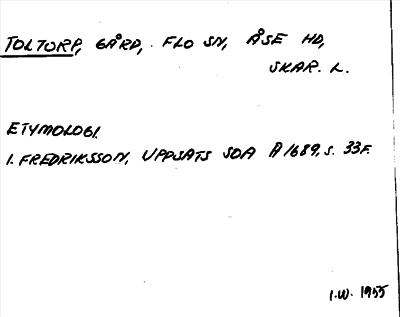 TOLTORP, GÅRD, FLO SN, ÅSE HD,
SKAR. L.
ETYMOLOGI.
I. FREDRIKSSON, UPPSATS SOA Å 1689, S. 33F.
I.W. 1955